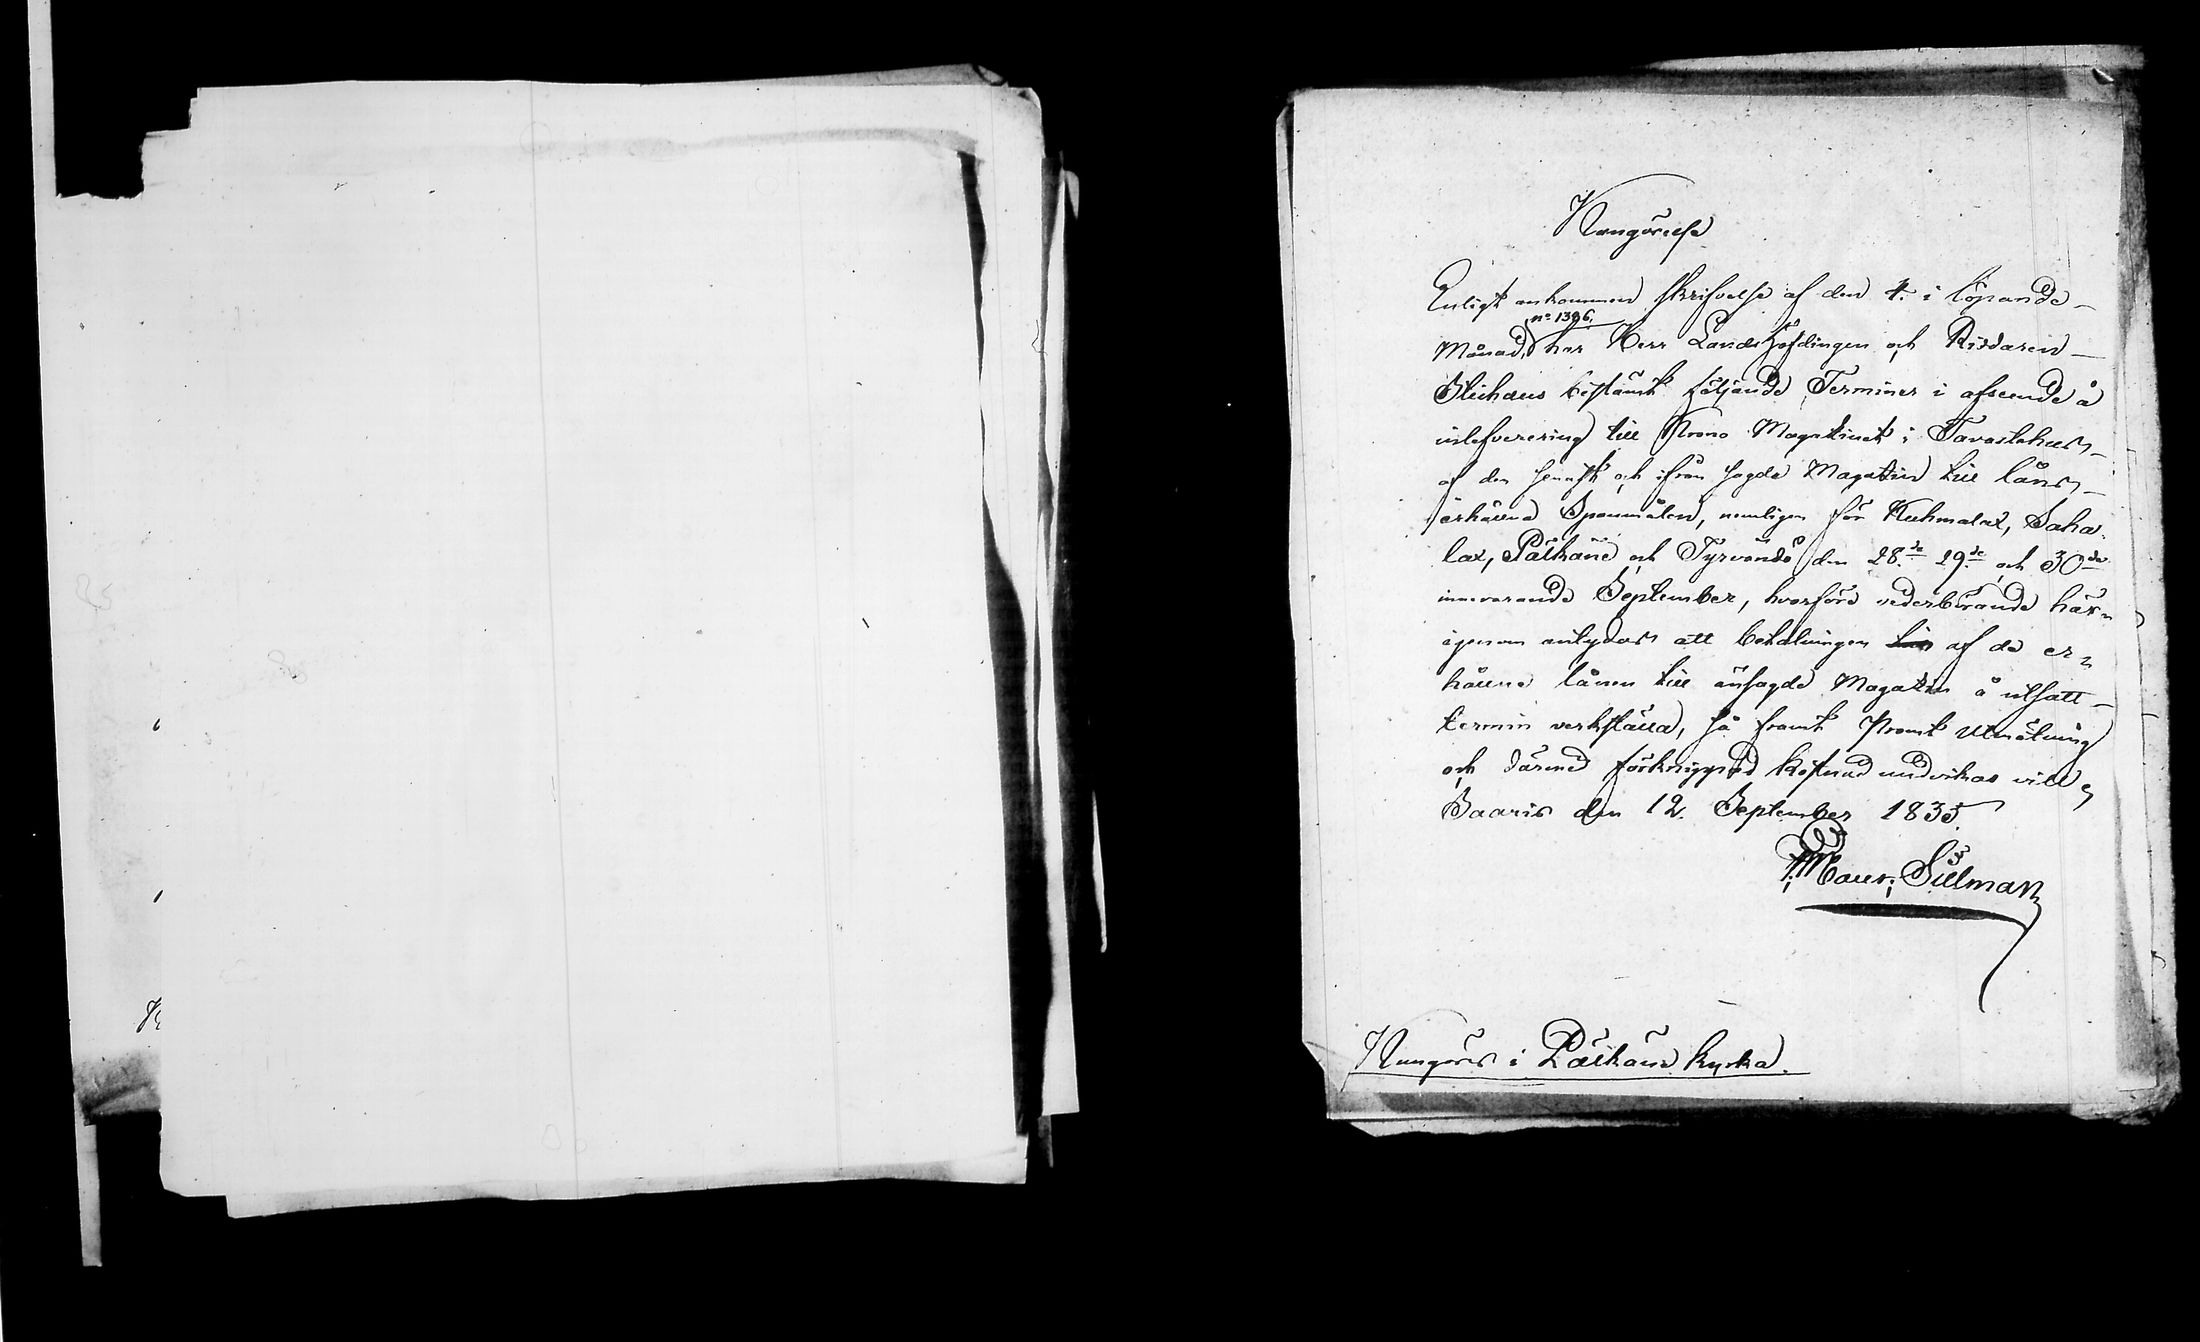 Kungörelse
Enligt ankommen skrifvelse af den 4. i löpande
n:o 1396.
Månad, har Herr Landshöfdingen och Riddaren
bestämt följande Terminer i afseende å
inlefverering till Krono Magatinet i Tavastehus,
af den sennst och ifrån sagde Magatin till låns
erhållne Spanmålen, nemligen för Kuhmalax, Saha-
lax, Pälkäne och Tyrvändö den 28:de 29:de och 30:de
innevarande September, hvarföre vederbörande här-
igenom antydas att betalningen af de er-
hållne lånen till ansagde Magatin å utsatt
termin verkställa, så framt Promt Utmätning
och därmed förknippad kostnad undvikas vill,
Saaris den 12. September 1835.
Maur: Silman
Kungöres i Pälkäne kyrka.